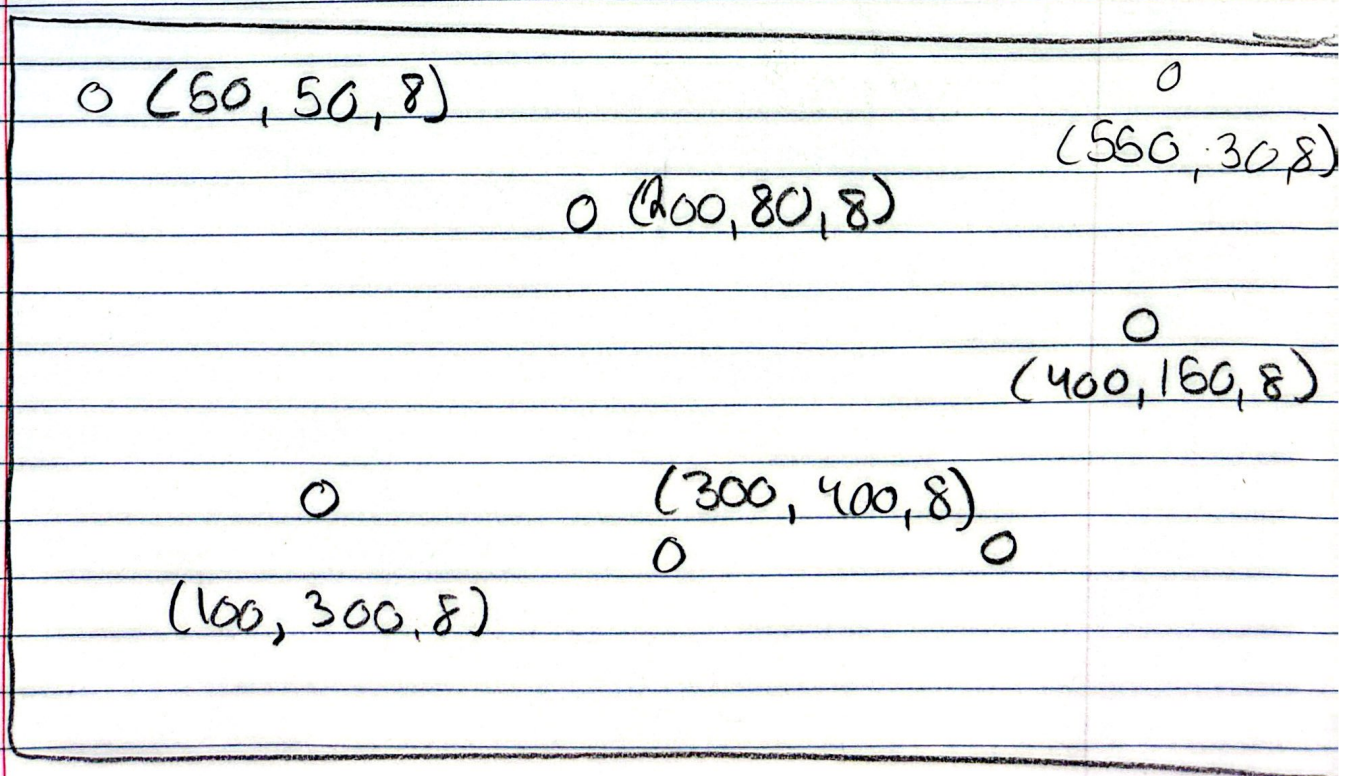 (50, 50, 8)
(550, 30, 8)
(200, 80, 8)
(400, 150, 8)
(300, 400, 8)
(100, 300, 8)